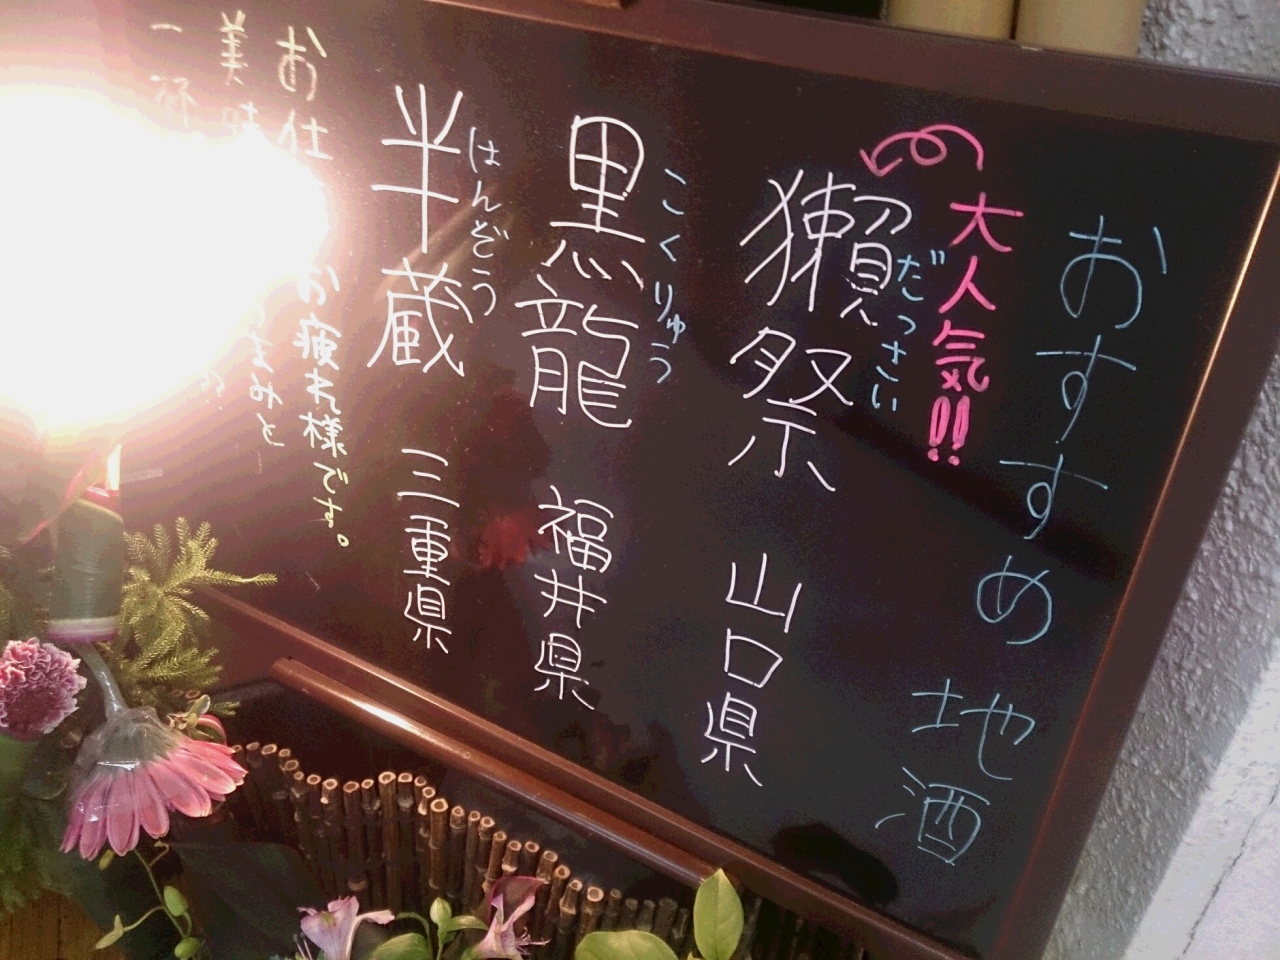 おすすめ 地酒
大人気!!
獺祭 山口県
だっさい
黒龍 福井県
こくりゅう
半蔵 三重県
はんぞう
お仕
お疲れ様です。
美味
まみと
一杯